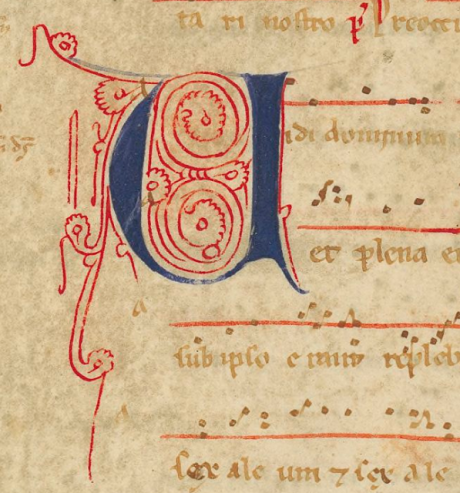 ta ri nostro p̄ Preocc
Vidi dominum
et plena e
sub ipso e rant repleb
sex ale uni ⁊ sex ale